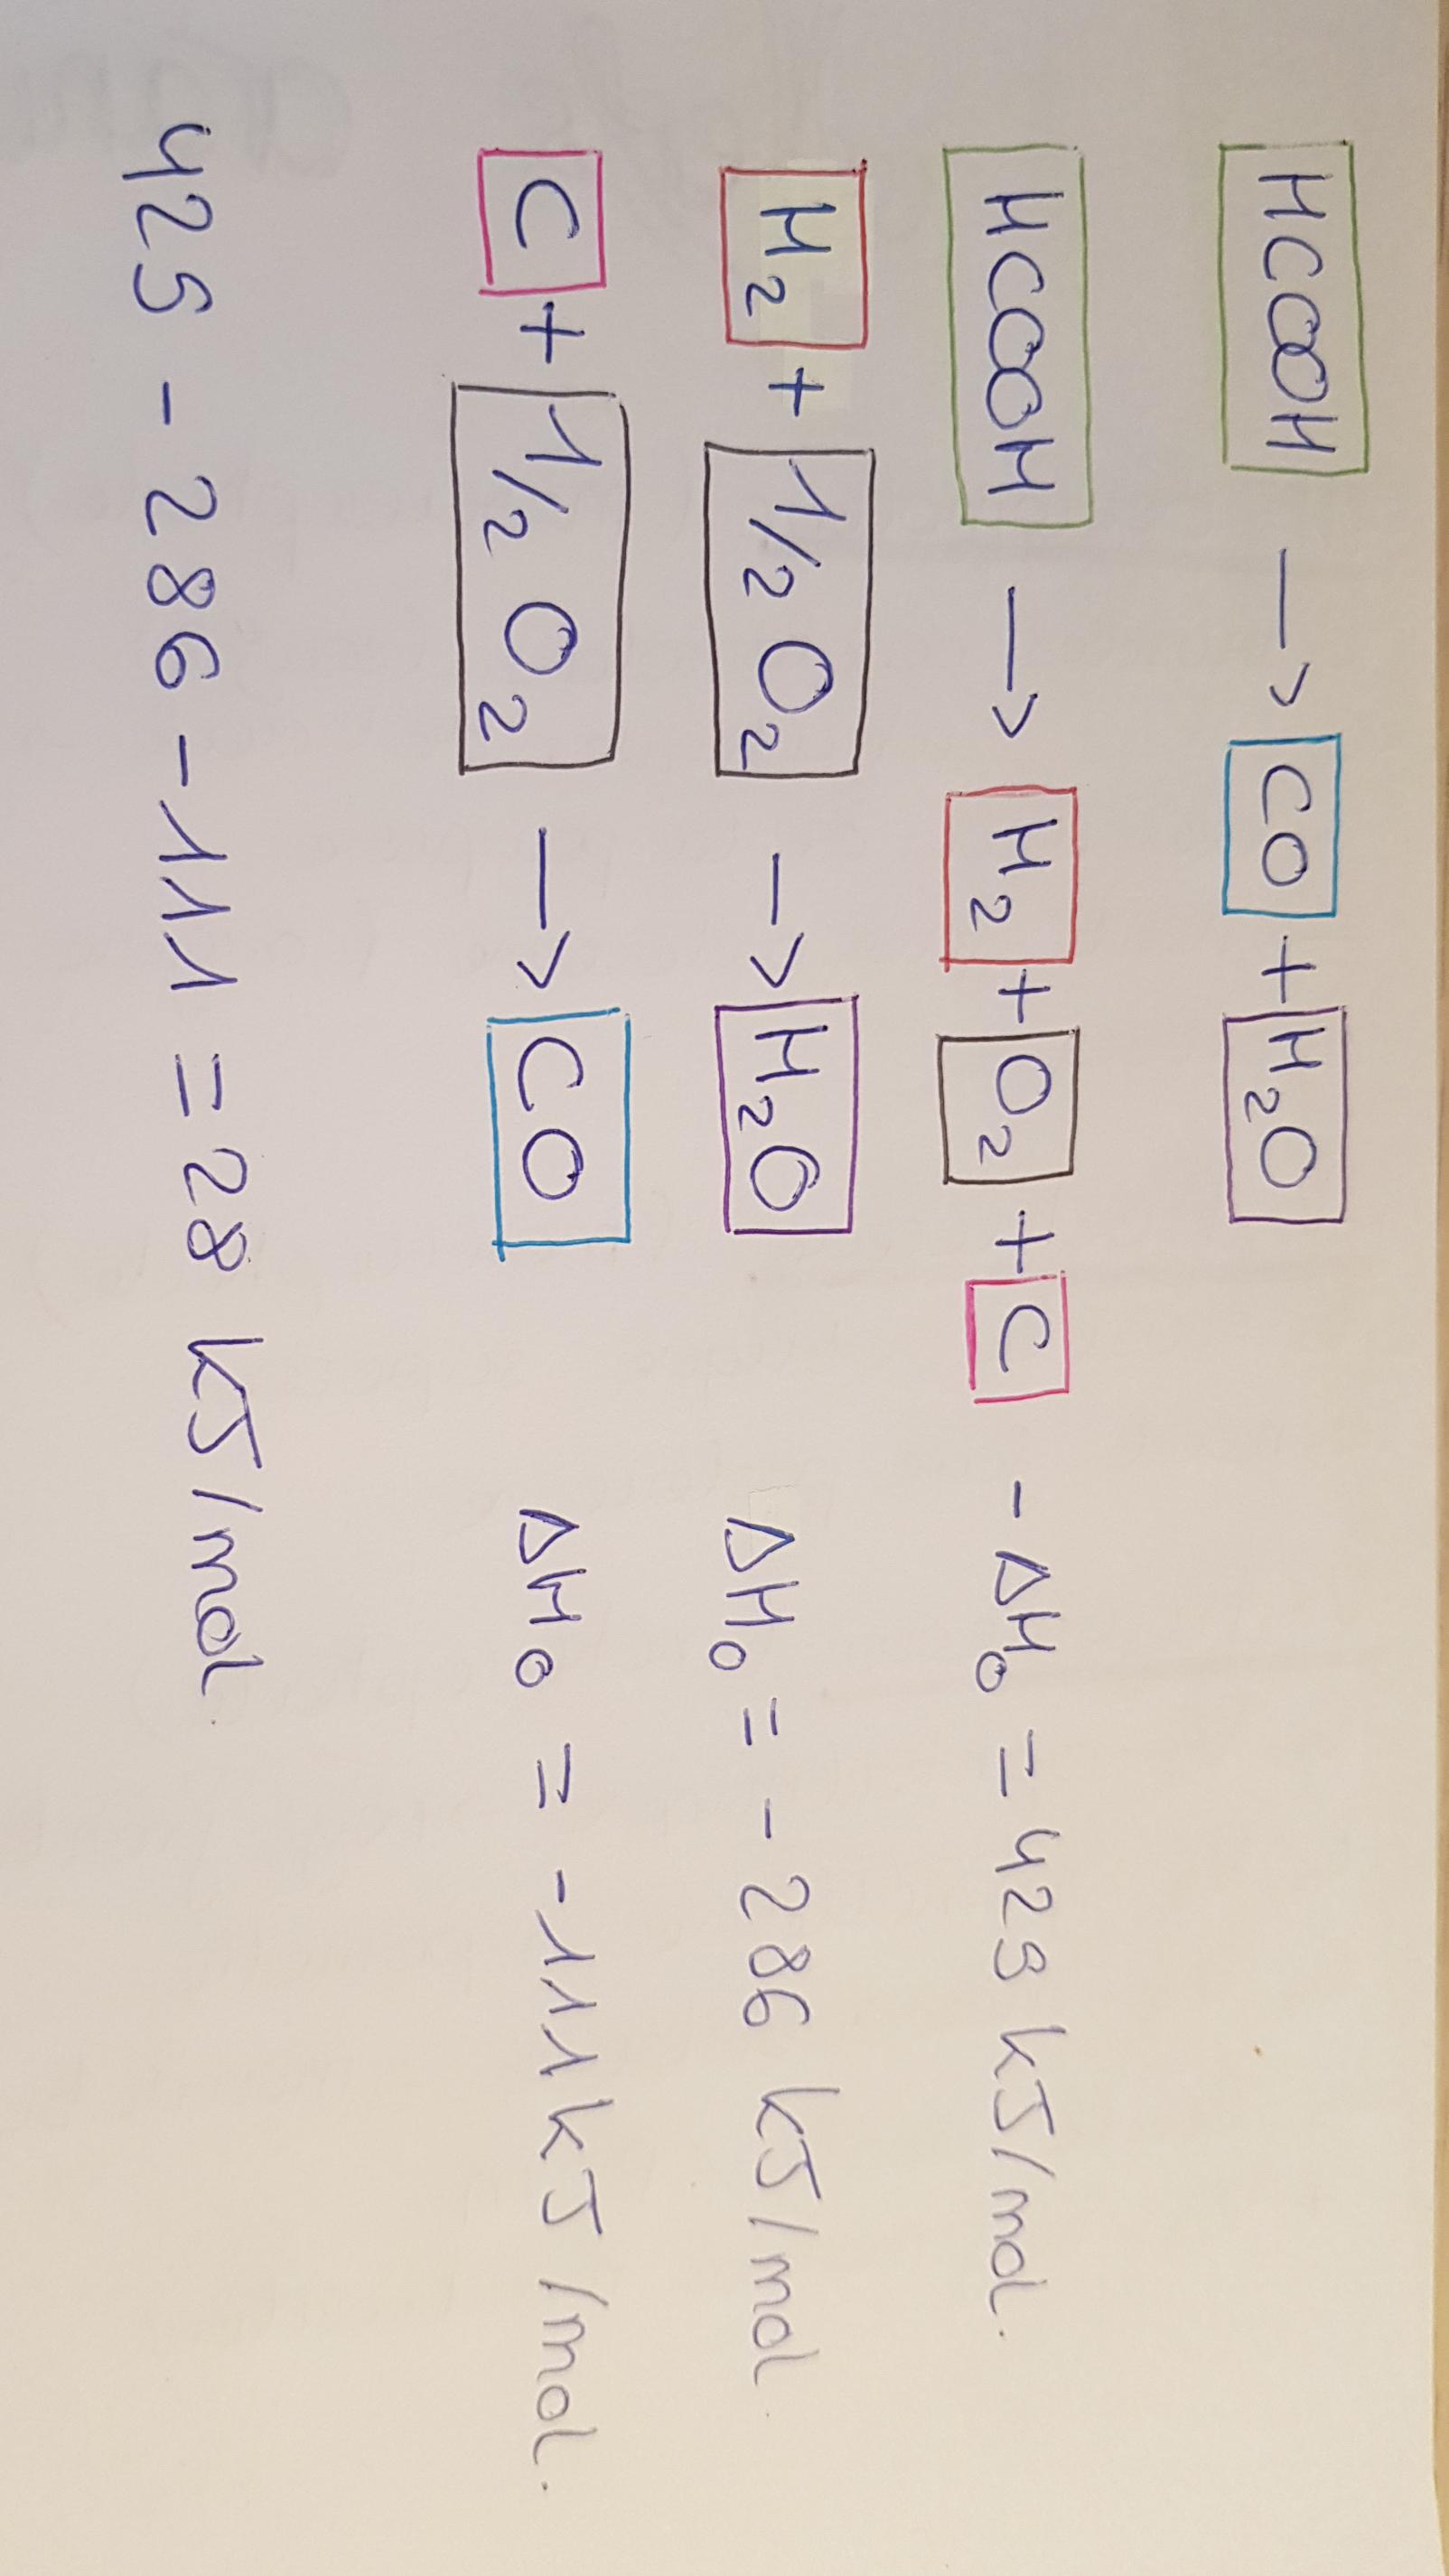 HCOOH → CO + H₂O
HCOOH → H₂ + O₂ + C - ΔH₀ = 425 kJ/mol.
H₂ + 1/2 O₂ → H₂O ΔH₀ = - 286 kJ/mol.
C + 1/2 O₂ → CO ΔH₀ = -111 kJ/mol.
425 - 286 - 111 = 28 kJ/mol.